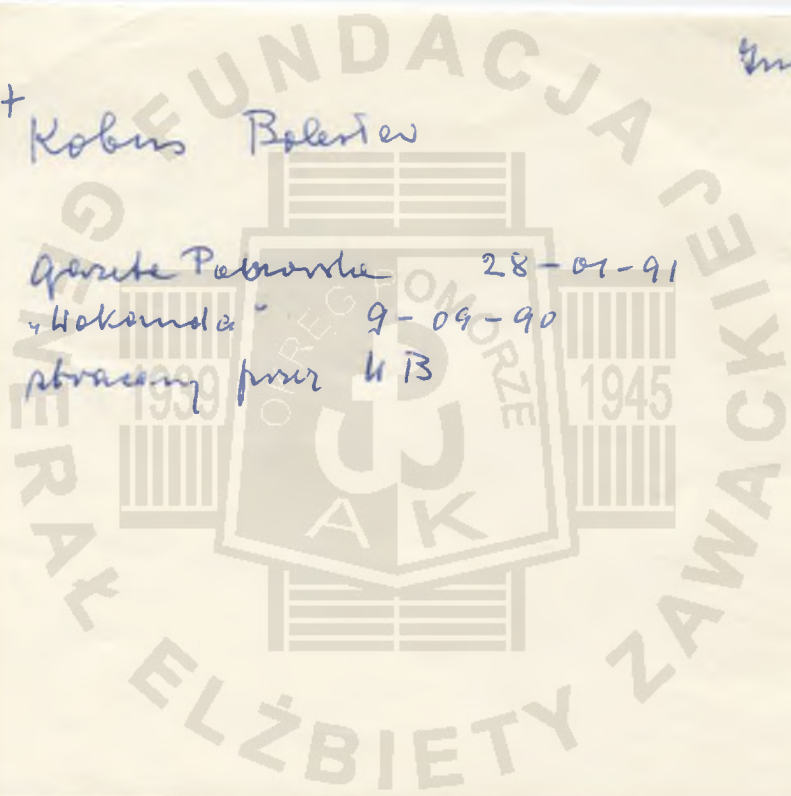 +
Kobus Bolesław
Gazeta Pomorska 28-01-91
"Wokanda" 9-09-90
stracony przez UB
FUNDACJA GENERAŁ ELŻBIETY ZAWACKIEJ
OKRĘG POMORZE
1939 1945
AK